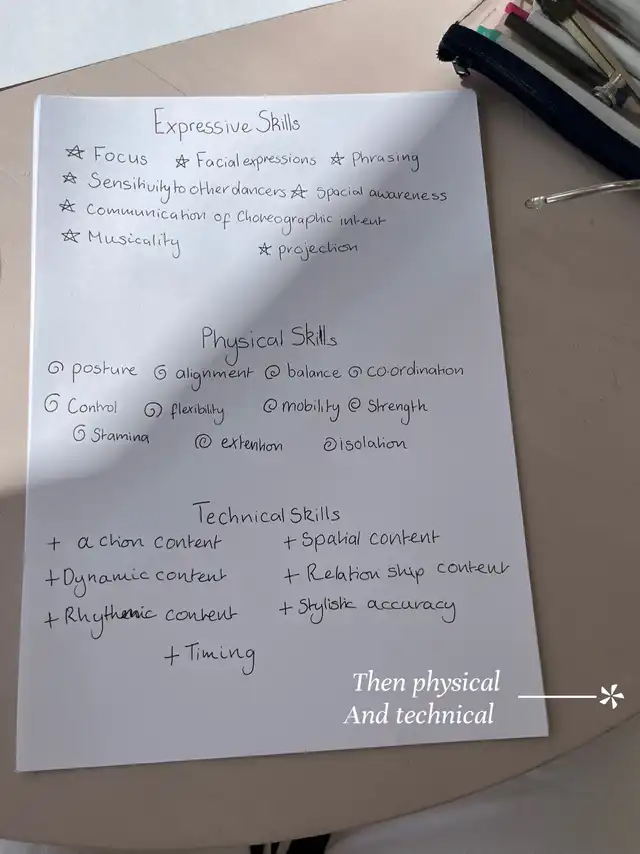 Expressive Skills
☆ Focus ☆ Facial expressions ☆ Phrasing
☆ Sensitivity to other dancers ☆ Spacial awareness
☆ Communication of Choreographic intent
☆ Musicality ☆ projection
Physical Skills
@ posture @ alignment @ balance @ co-ordination
@ Control @ flexibility @ mobility @ Strength
@ Stamina @ extention @ isolation
Technical Skills
+ action content + Spatial content
+ Dynamic content + Relationship content
+ Rhythmic content + Stylistic accuracy
+ Timing
Then physical
And technical